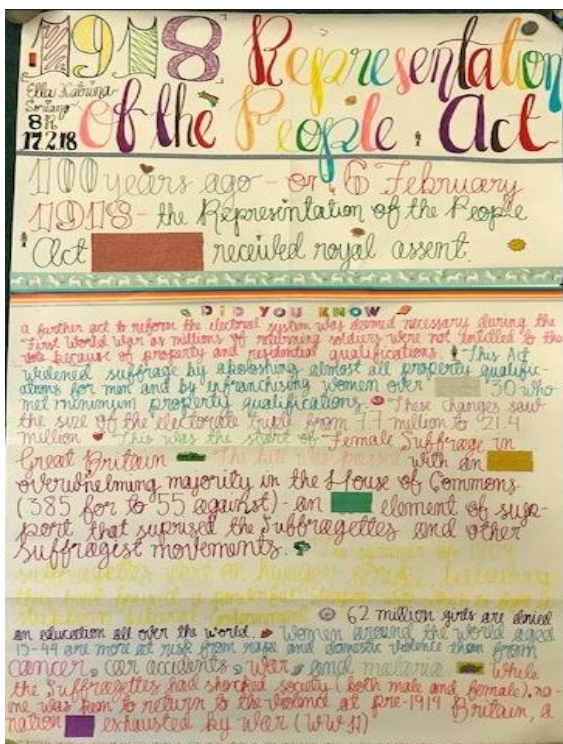 1918 Representation
Ella Katrina
Soriano
8R
17.2.18
of the People Act
100 years ago - on 6 February
1918 - the Representation of the People
Act received royal assent.
DID YOU KNOW
a further act to reform the electoral system was deemed necessary during the
First World War as millions of returning soldiers were not entitled to the
vote because of property and residential qualifications. This Act
widened suffrage by abolishing almost all property qualific-
ations for men and by enfranchising women over 30 who
met minimum property qualifications. These changes saw
the size of the electorate triple from 7.7 million to 21.4
million This was the start of Female Suffrage in
Great Britain The bill was passed with an
overwhelming majority in the House of Commons
(385 for to 55 against) - an element of supp-
port that suprised the Suffragettes and other
suffragist movements. The summer of 1909
suffragettes went on hunger strike
62 million girls are denied
an education all over the world. Women around the world aged
15-44 are more at risk from rape and domestic violence than from
cancer, car accidents, war and malaria While
the Suffragettes had shocked society (both male and female), no-
one was keen to return to the violence of pre-1914 Britain, a
nation exhausted by war (WW1)